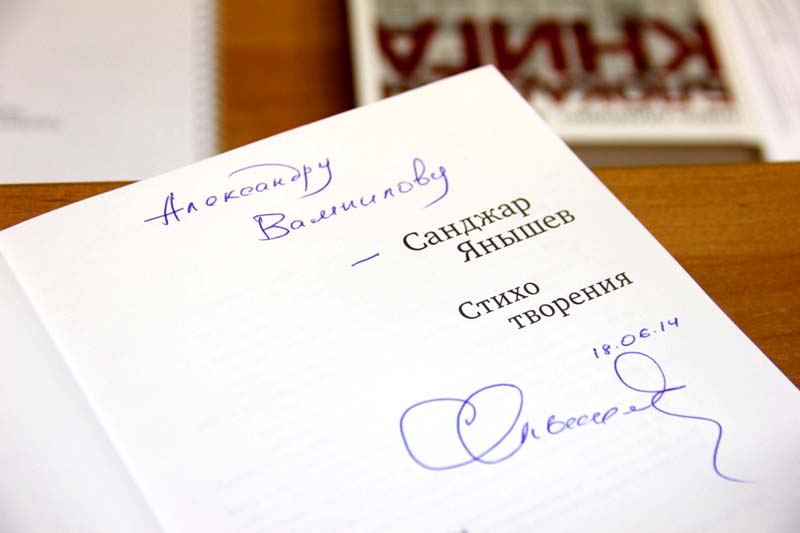 Александру
Вампилову
— Санджар
Янышев
Стихо
творения
18.06.14
КНИГА